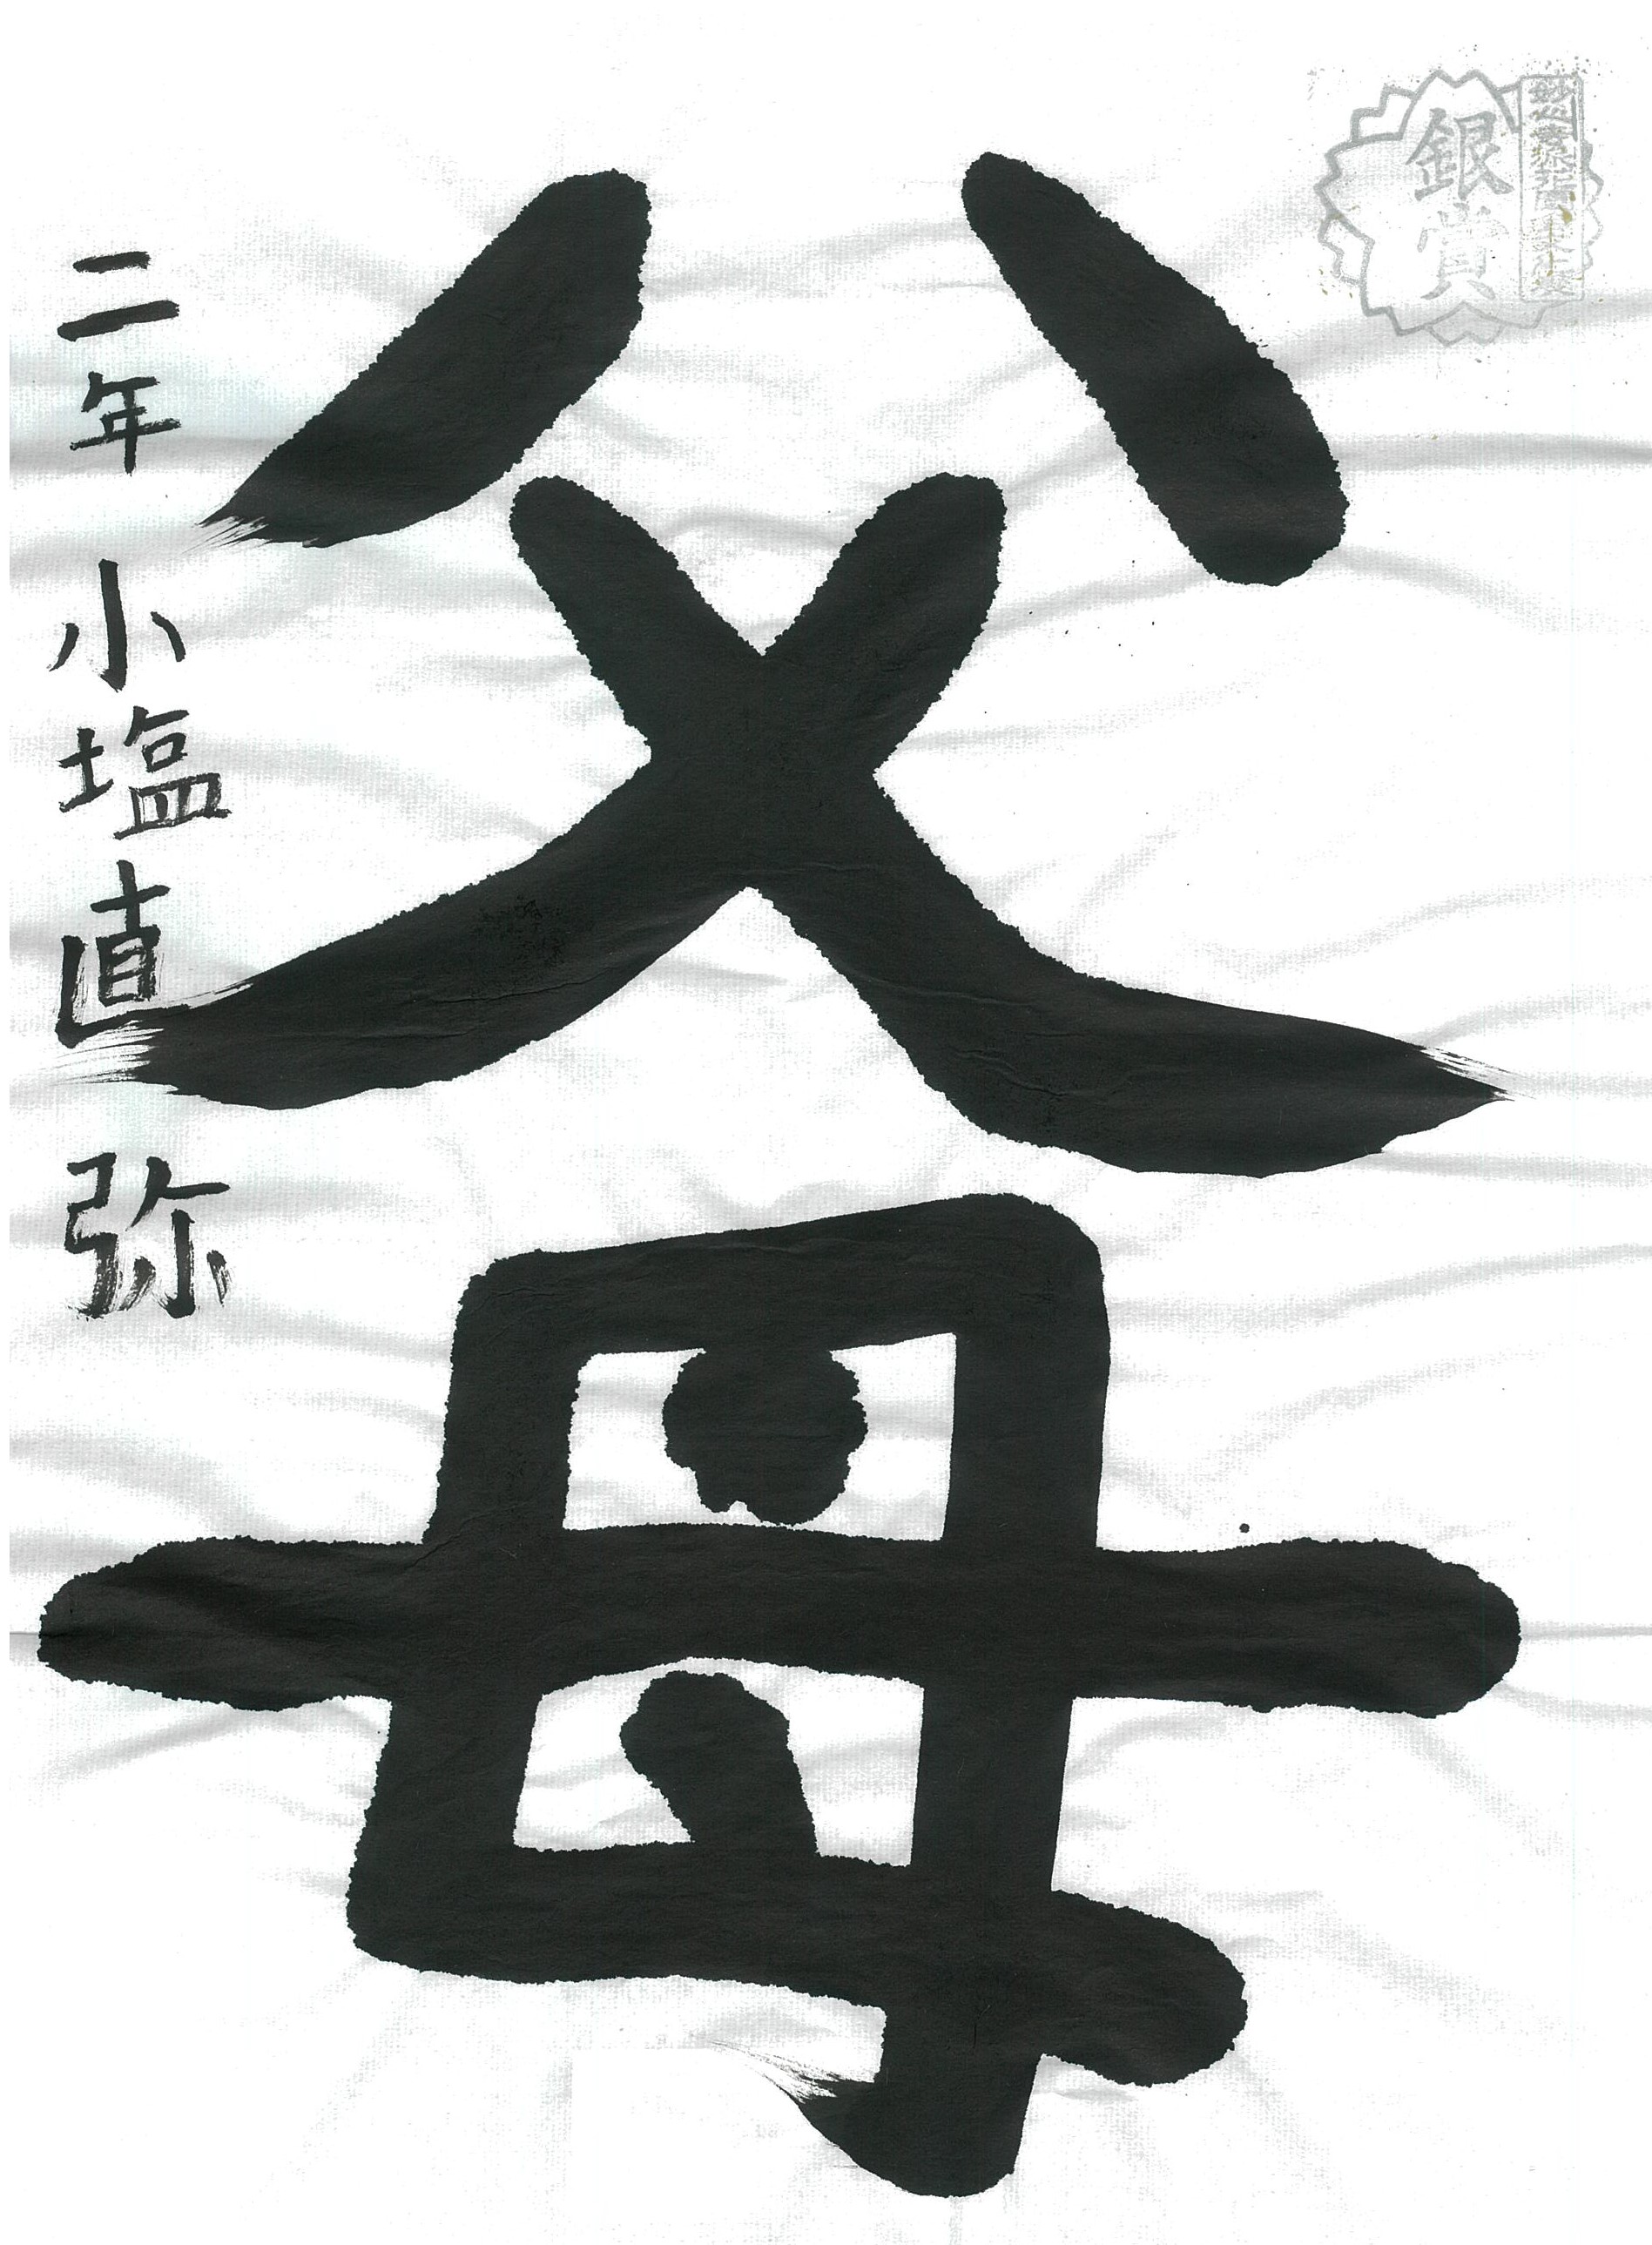 銀賞
父母
二年 小塩直弥